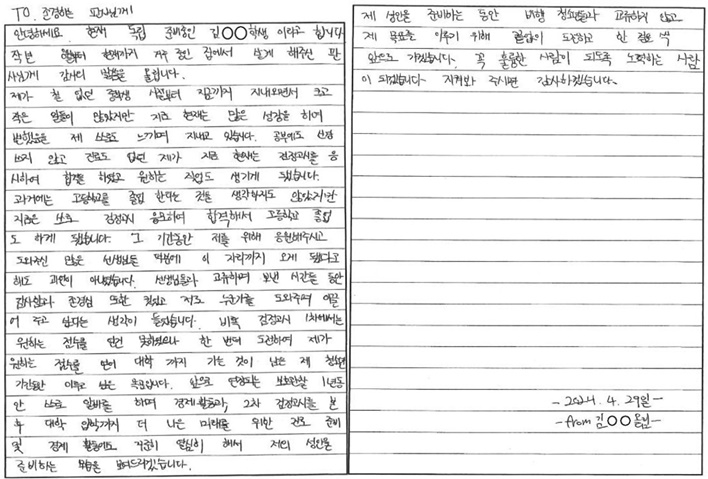 TO. 존경하는 판사님께
안녕하세요. 현재 독립 준비중인 김○○학생 이라고 합니다
작년 부터 현재까지 거주 중인 집에서 살게 해주신 판
사님께 감사의 말씀을 올립니다.
제가 철 없던 중학생 시절부터 지금까지 지내오면서 크고
작은 일들이 많았지만 지금 현재는 많은 성장을 하며
변했음을 제 스스로도 느끼며 지내고 있습니다. 공부에도 신경
쓰지 않고 진로도 없던 제가 지금 현재는 검정고시를 응
시하여 합격을 하였고 원하는 직업도 생기게 되었습니다.
과거에는 고등학교를 졸업 한다는 것을 생각하지도 않았지만
지금은 스스로 검정고시 응시하여 합격해서 고등학교 졸업
도 하게 됐습니다. 그 기간동안 저를 위해 응원해주시고
도와주신 많은 선생님들 덕분에 이 자리까지 오게 됐다고
해도 과언이 아니었습니다. 선생님들과 교류하며 보낸 시간들 동안
감사함과 존경심 또한 컸었고 저도 누군가를 도와주며 이끌
어 주고 싶다는 생각이 들었습니다. 비록 검정고시 1차에서는
원하는 점수를 얻진 못하였으나 한 번 더 도전하여 제가
원하는 점수를 얻어 대학 까지 가는 것이 남은 제 청소년
기간동안 이루고 싶은 목표입니다. 앞으로 연장되는 보호관찰 1년동
안 스스로 알바를 하며 경제활동과, 2차 검정고시를 본
후 대학 입학까지 더 나은 미래를 위한 진로 준비
및 경제 활동에도 꾸준히 열심히 해서 저의 성인을
준비하는 모습을 보여드리겠습니다.
제 성인을 준비하는 동안 비행 청소년들과 교류하지 않고
제 목표로 이루기 위해 끝없이 도전하고 한 걸음 씩
앞으로 가겠습니다. 꼭 훌륭한 사람이 되도록 노력하는 사람
이 되겠습니다. 지켜봐 주시면 감사하겠습니다.
- 2024. 4. 29일 -
- from 김○○ 올림 -